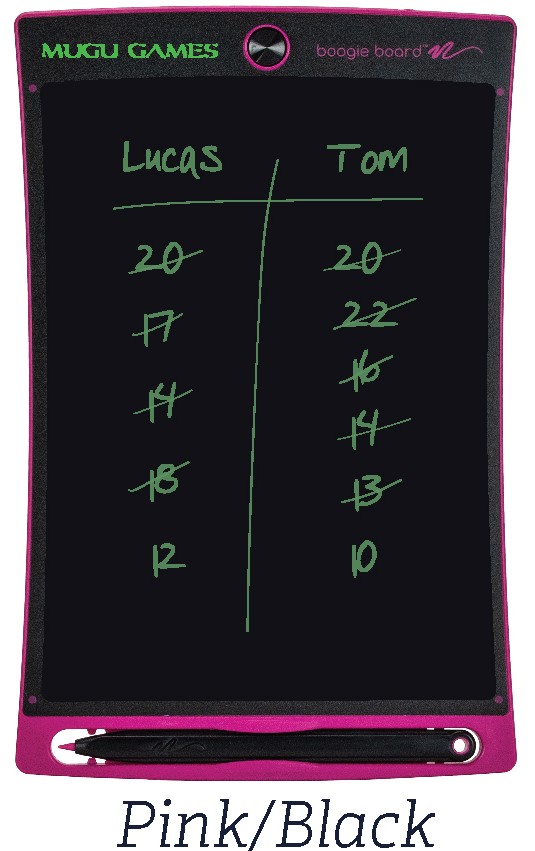 MUGU GAMES boogie board™
Lucas Tom
20 20
17 22
14 16
18 14
12 13
10
Pink/Black